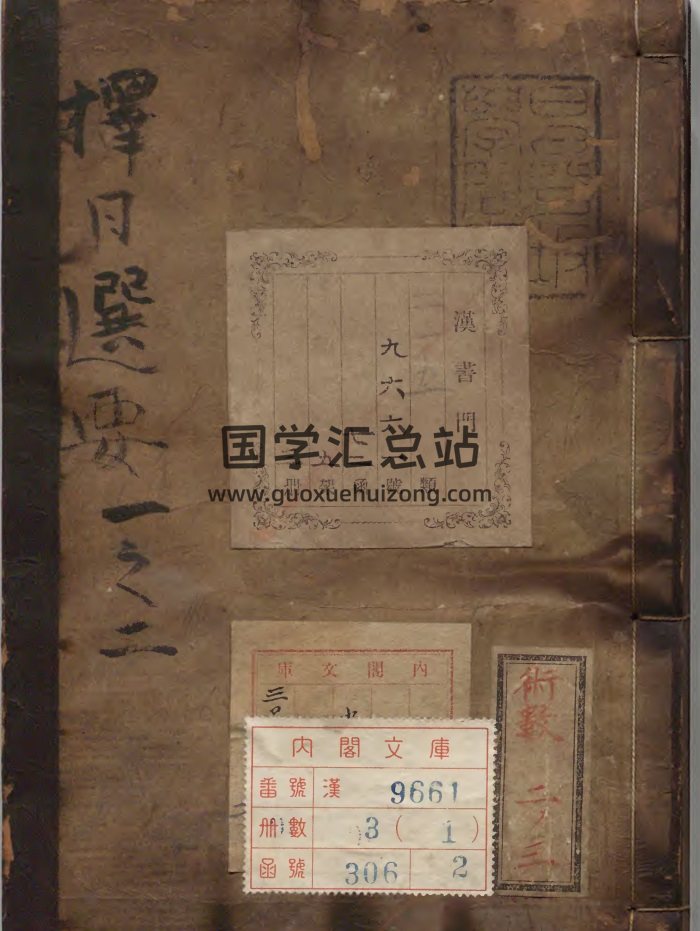 擇日選要 一之二
漢書門
九六六
類 號 函 架 冊
国学汇总站
www.guoxuehuizong.com
內閣文庫
三
內閣文庫
番號 漢 9661
冊數 3 ( 1 )
函號 306 2
術數 二ノ三